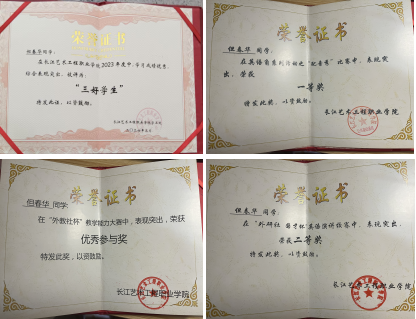 荣誉证书
但春华同学:
在长江艺术工程职业学院2023年度中,学习成绩优秀,
综合表现突出,被评为
“三好学生”
特发此证,以资鼓励。
长江艺术工程职业学院
荣誉证书
但春华 同学:
在英语角系列活动之“配音秀”比赛中,表现突
出,荣获
一等奖
特发此奖,以资鼓励。
长江艺术工程职业学院
荣誉证书
但春华 同学:
在“外教社杯”教学能力大赛中,表现突出,荣获
优秀参与奖
特发此奖,以资鼓励。
长江艺术工程职业学院
荣誉证书
但春华 同学:
在“外研社·国才杯英语演讲比赛中,表现突出,
荣获二等奖
特发此奖,以资鼓励。
长江艺术工程职业学院